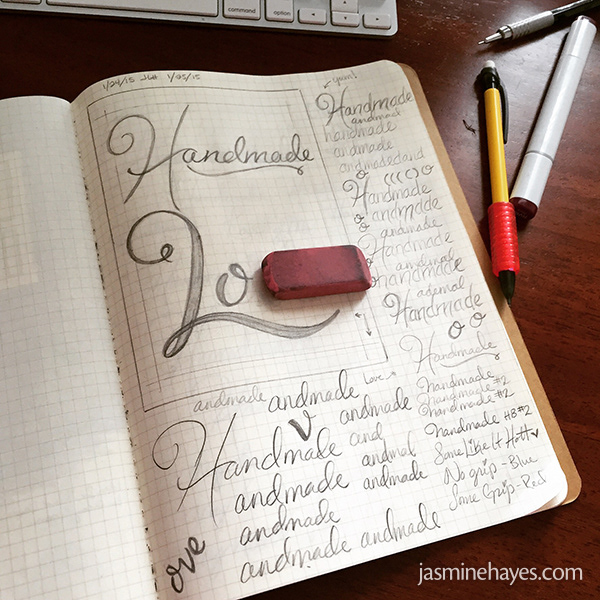 command
option
1/24/15 JLH 1/25/15
Handmade
Lo
Handmade
andmade
handmade
andmade
andmadedand
Handmade
andmade
andmade
Handmade
andmade
Handmade
Handmade
handmade
handmade #2
handmade #2
handmade HB #2
Some Like It Hott
No grip - Blue
Some Grip - Red
andmade andmade
Love
Handmade andmade
v
and
andmade andmad
andmade
andmade
andmade andmade
ove
jasminehayes.com